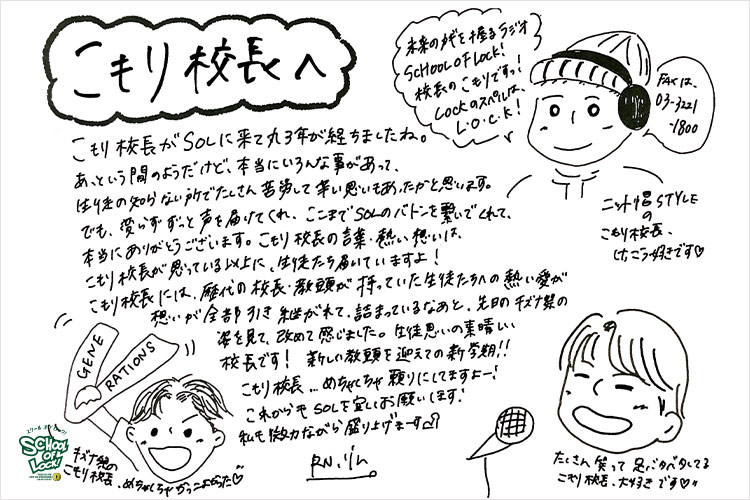 こもり校長へ
未来の鍵を握るラジオ
SCHOOL OF LOCK!
校長のこもりですっ!
LOCKのスペルは、
L・O・C・K!
FAXは、
03-3221
-1800
ニット帽STYLE
の
こもり校長、
けっこう好きです♡
こもり校長がSOLに来て丸3年が経ちましたね。
あっという間のようだけど、本当にいろんな事があって、
生徒の知らない所でたくさん苦労して辛い思いもあったかと思います。
でも、変らずずっと声を届けてくれ、ここまでSOLのバトンを繋いでくれて、
本当にありがとうございます。こもり校長の言葉・熱い想いは、
こもり校長が思っている以上に、生徒たち届いていますよ!
こもり校長には、歴代の校長・教頭が持っていた生徒たちへの熱い愛が
想いが全部引き継がれて、詰まっているなあと、先日のキズナ祭の
姿を見て、改めて感じました。生徒思いの素晴しい
校長です! 新しい教頭を迎えての新学期!!
こもり校長…めちゃくちゃ頼りにしてますよー!
これからもSOLを宜しくお願いします!
私も微力ながら盛り上げます
RN.リム
GENE
RATIONS
キズナ祭の
こもり校長、めちゃくちゃかっこよかった♡
スクールオブロック!
SCHOOL
OF
LOCK!
たくさん笑って 足バタバタしてる
こもり校長、大好きです♡